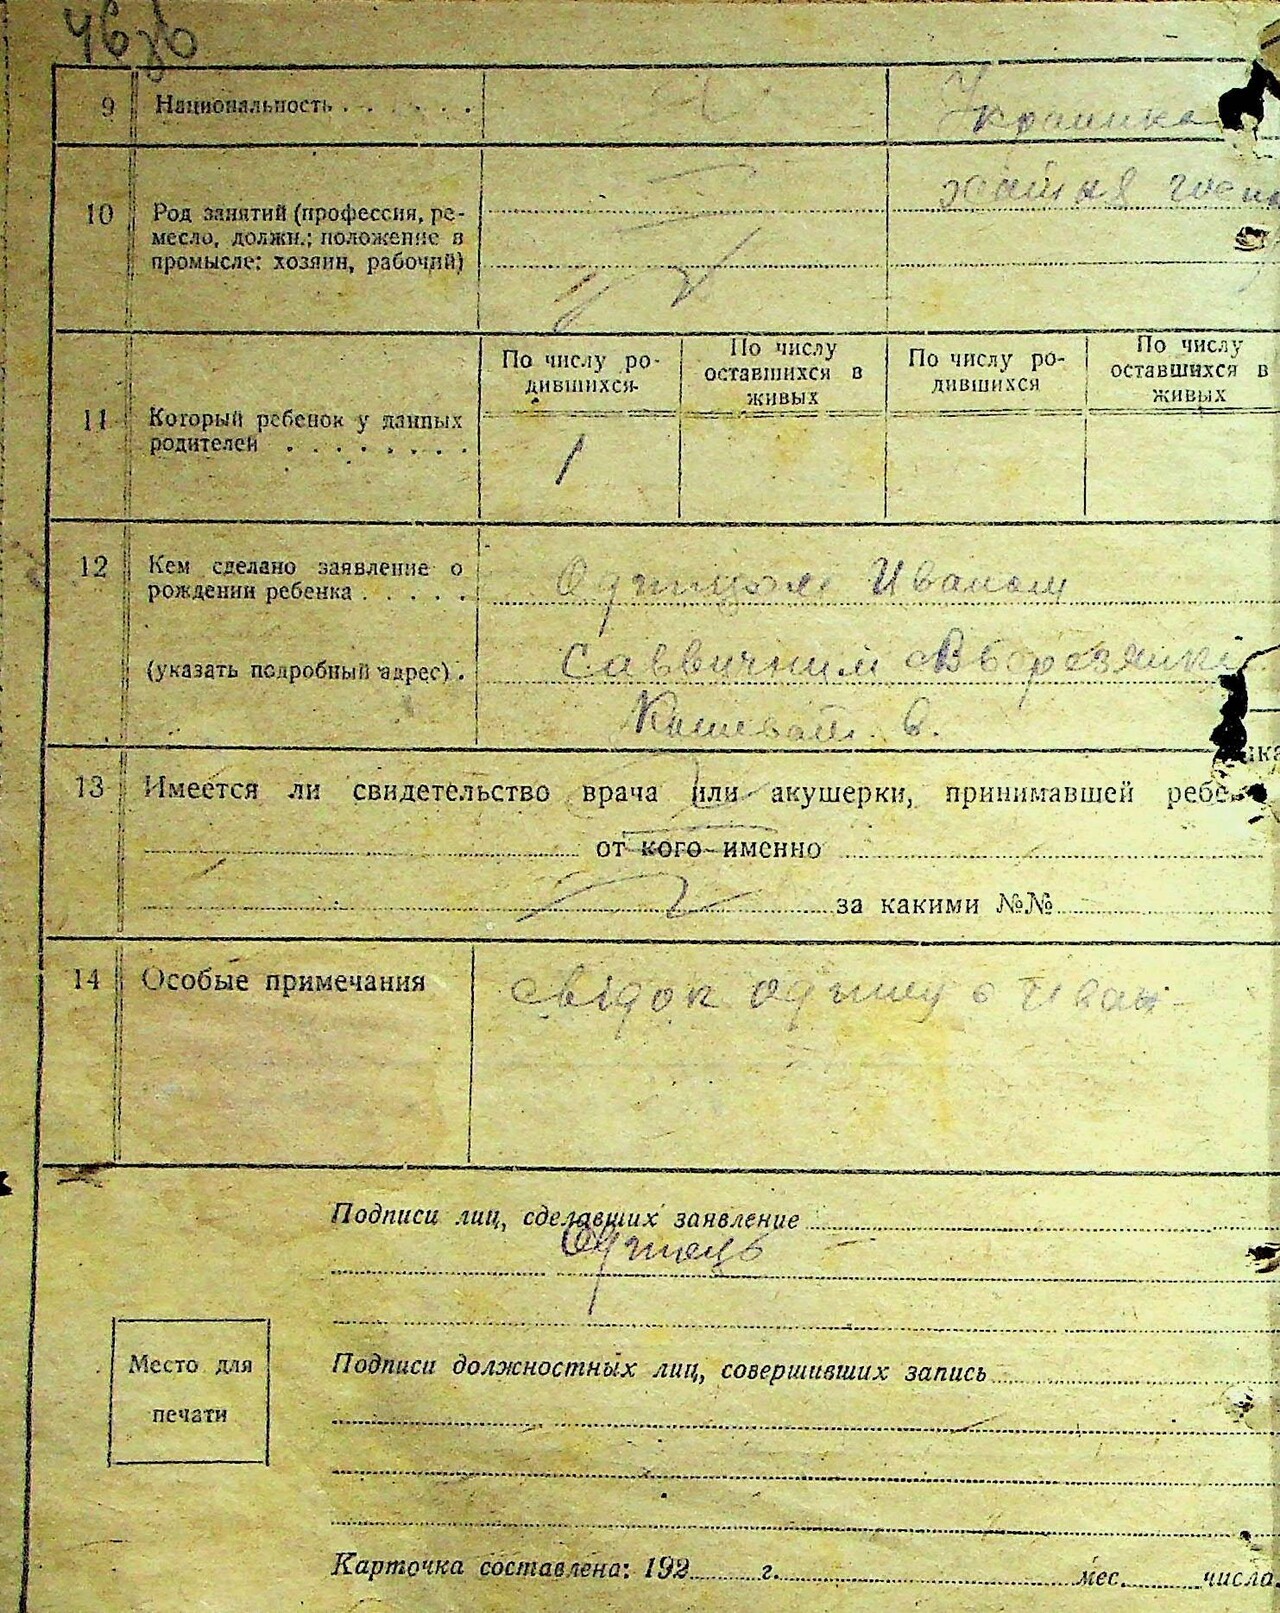 9 Национальность . . . . . . Украинка
10 Род занятий (профессия, ре-
месло, должн.; положение в
промысле: хозяин, рабочий)
хатня
11 Который ребенок у данных
родителей . . . . . . . .
По числу ро-
дившихся
По числу
оставшихся в
живых
По числу ро-
дившихся
По числу
оставшихся в
живых
1
12 Кем сделано заявление о
рождении ребенка . . . . .
(указать подробный адрес) .
Одинцом Иваном
Саввичним
13 Имеется ли свидетельство врача или акушерки, принимавшей
от кого именно
за какими №№
14 Особые примечания
свідок Иван
Подписи лиц, сделавших заявление
Подписи должностных лиц, совершивших запись
Место для
печати
Карточка составлена: 192 г. мес. числа.